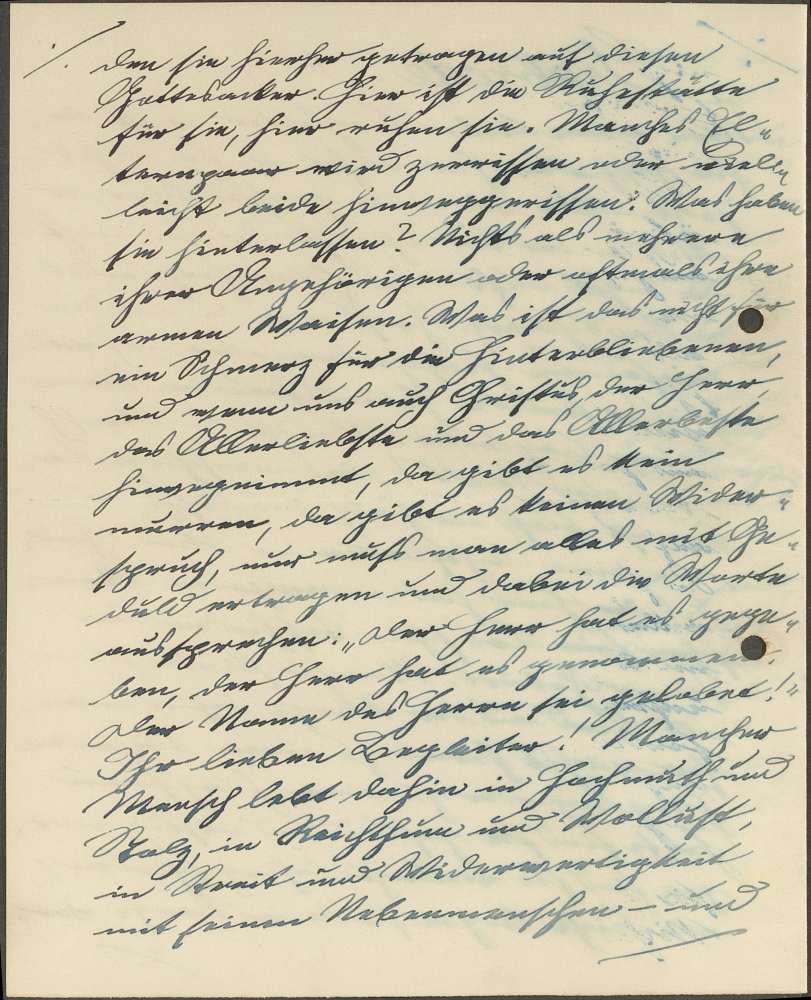 ./.
den sie hierher getragen auf diesen
Gottesacker. Hier ist die Ruhestätte
für sie, hier ruhen sie. Manches El-
ternpaar wird zerrissen oder viel
leicht beide hinweggerissen. Was haben
sie hinterlassen? Nichts als mehrere
ihrer Angehörigen oder oftmals ihre
armen Waisen. Was ist das nicht für
ein Schmerz für die Hinterbliebenen,
und wenn uns auch Christus, der Herr,
das Allerliebste und das Allerbeste
hinwegnimmt, da gibt es kein
murren, da gibt es keinen Wider-
spruch, nur muß man alles mit Ge-
duld ertragen und dabei die Worte
aussprechen: „Der Herr hat es gege-
ben, der Herr hat es genommen,
Der Name des Herrn sei gelobet!"
Ihr lieben Begleiter! Mancher
Mensch lebt dahin in Hochmuth und
Stolz, in Reichthum und Wollust,
in Streit und Widerwertigkeit
mit seinen Nebenmenschen – und